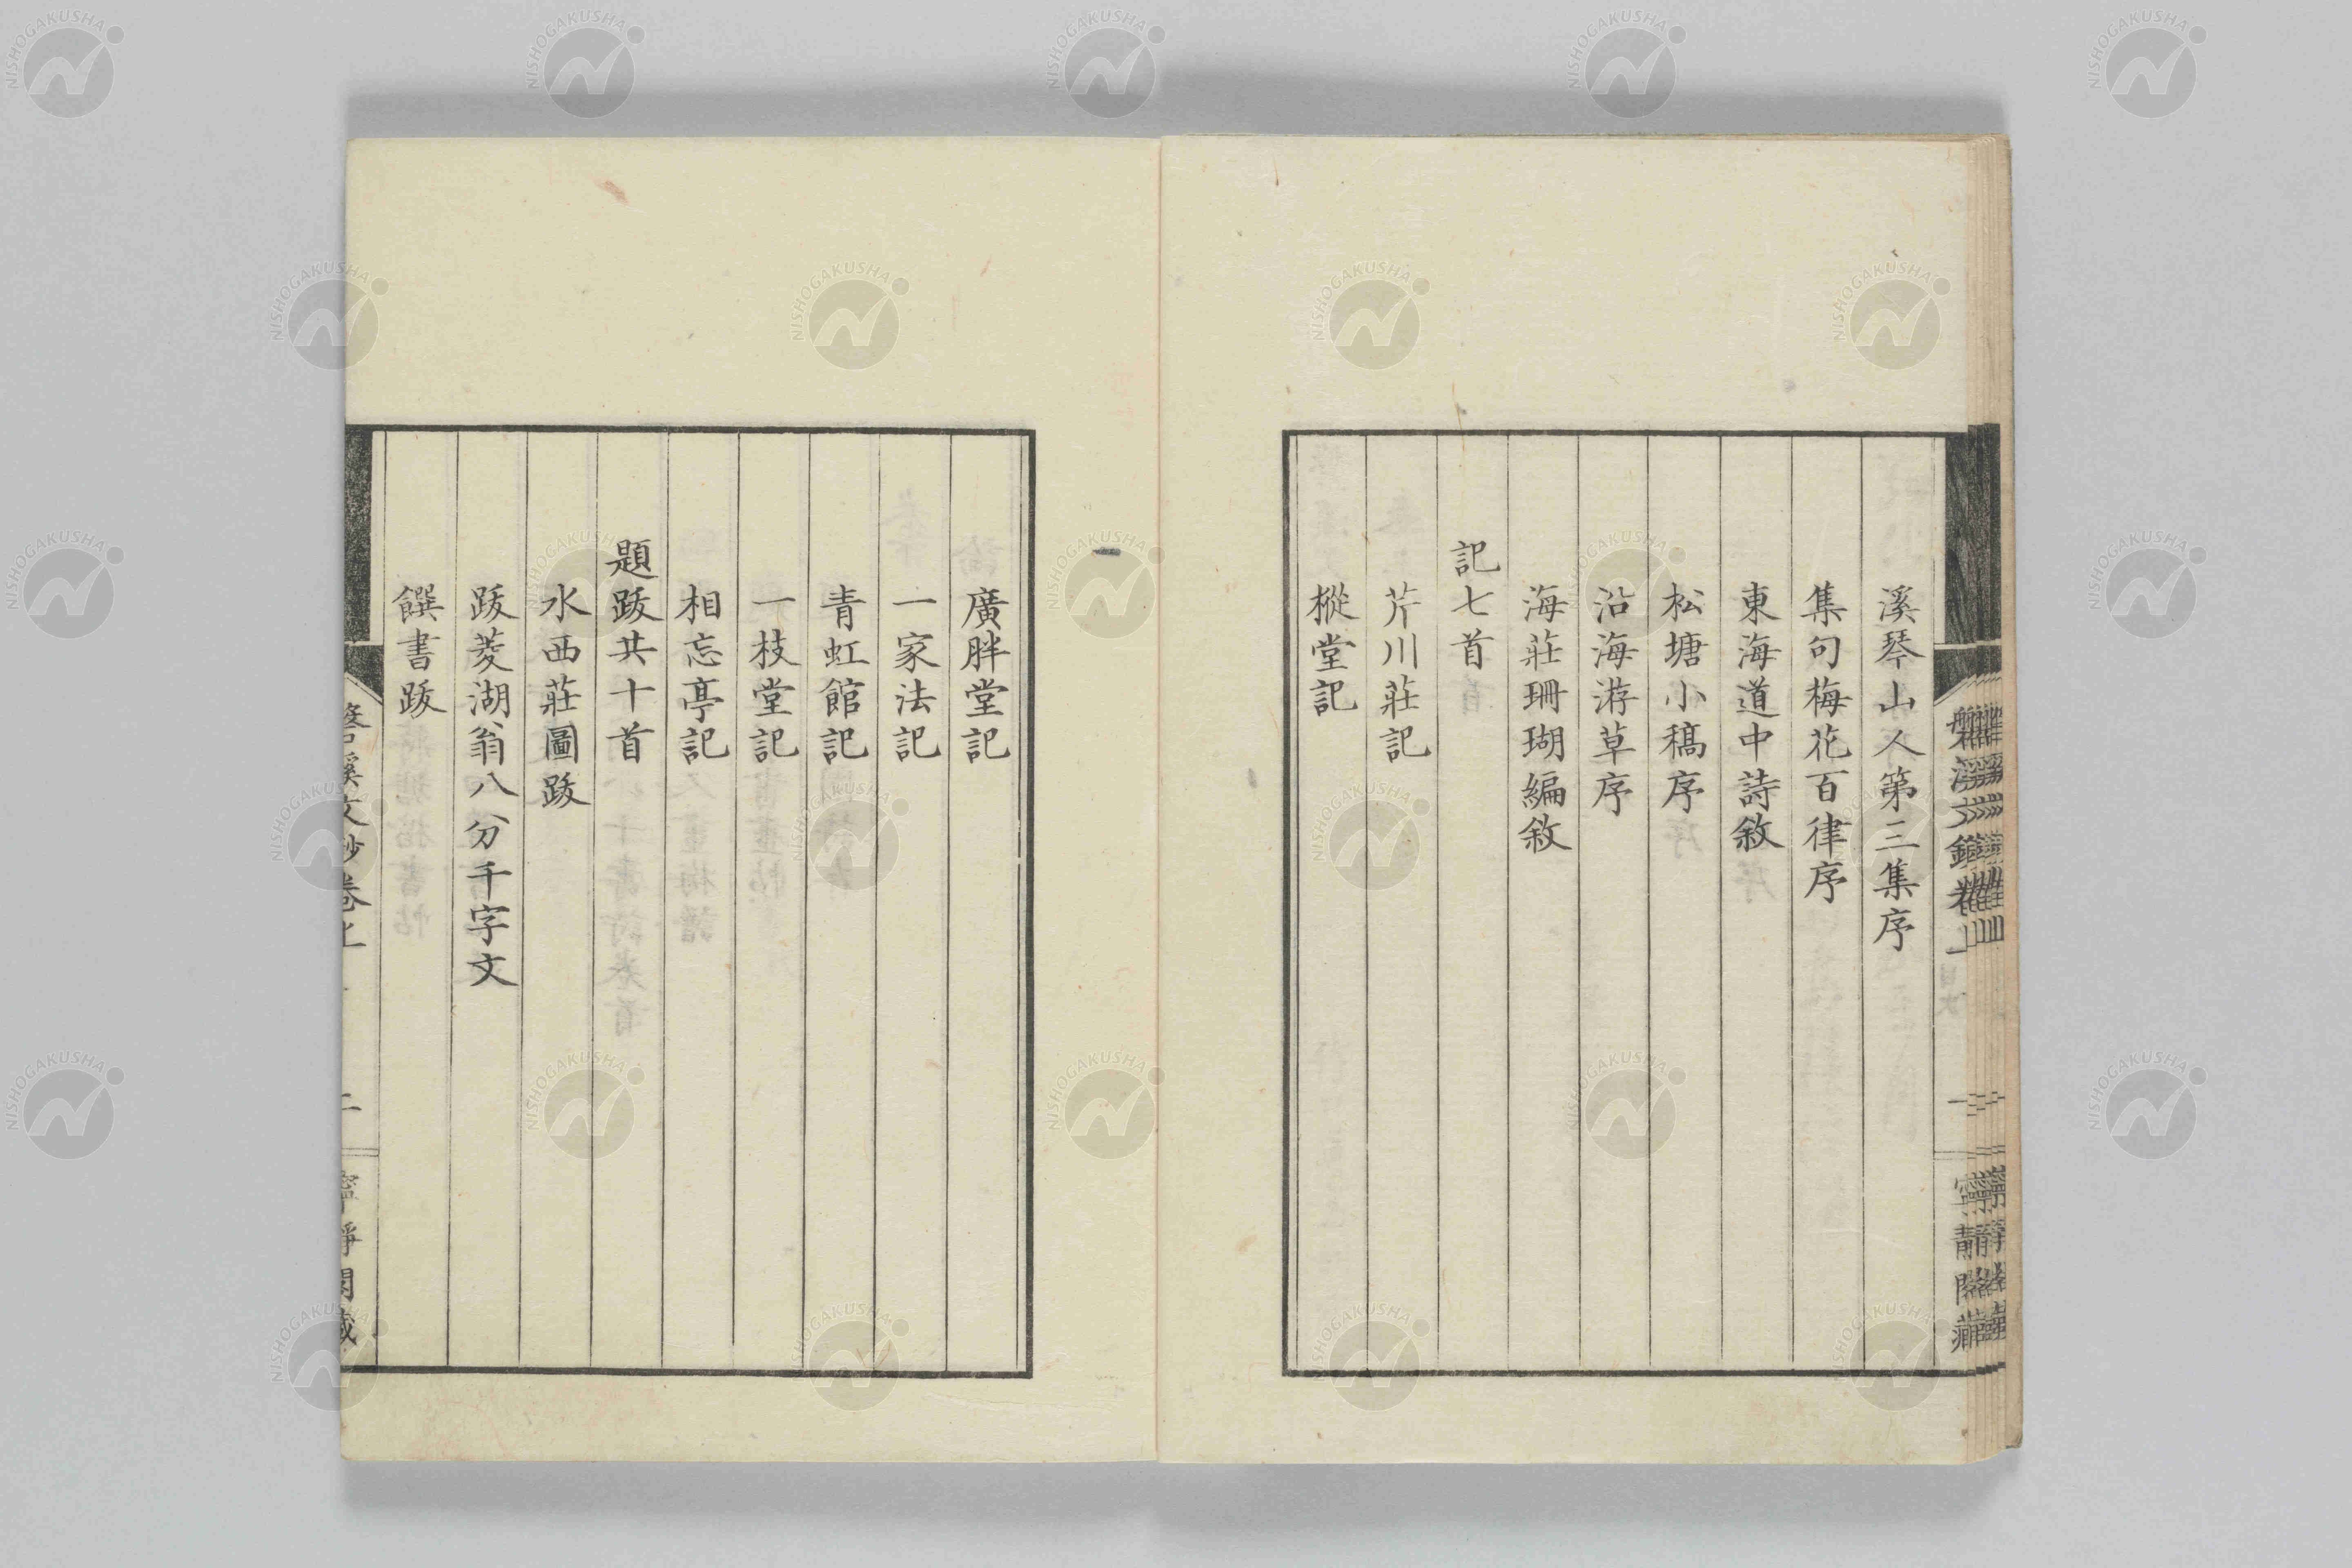 溪琴山人第三集序
集句梅花百律序
東海道中詩敘
松塘小稿序
沿海游草序
海莊珊瑚編敘
記七首
芹川莊記
樅堂記
廣胖堂記
一家法記
青虹館記
一枝堂記
相忘亭記
題跋共十首
水西莊圖跋
跋菱湖翁八分千字文
饌書跋